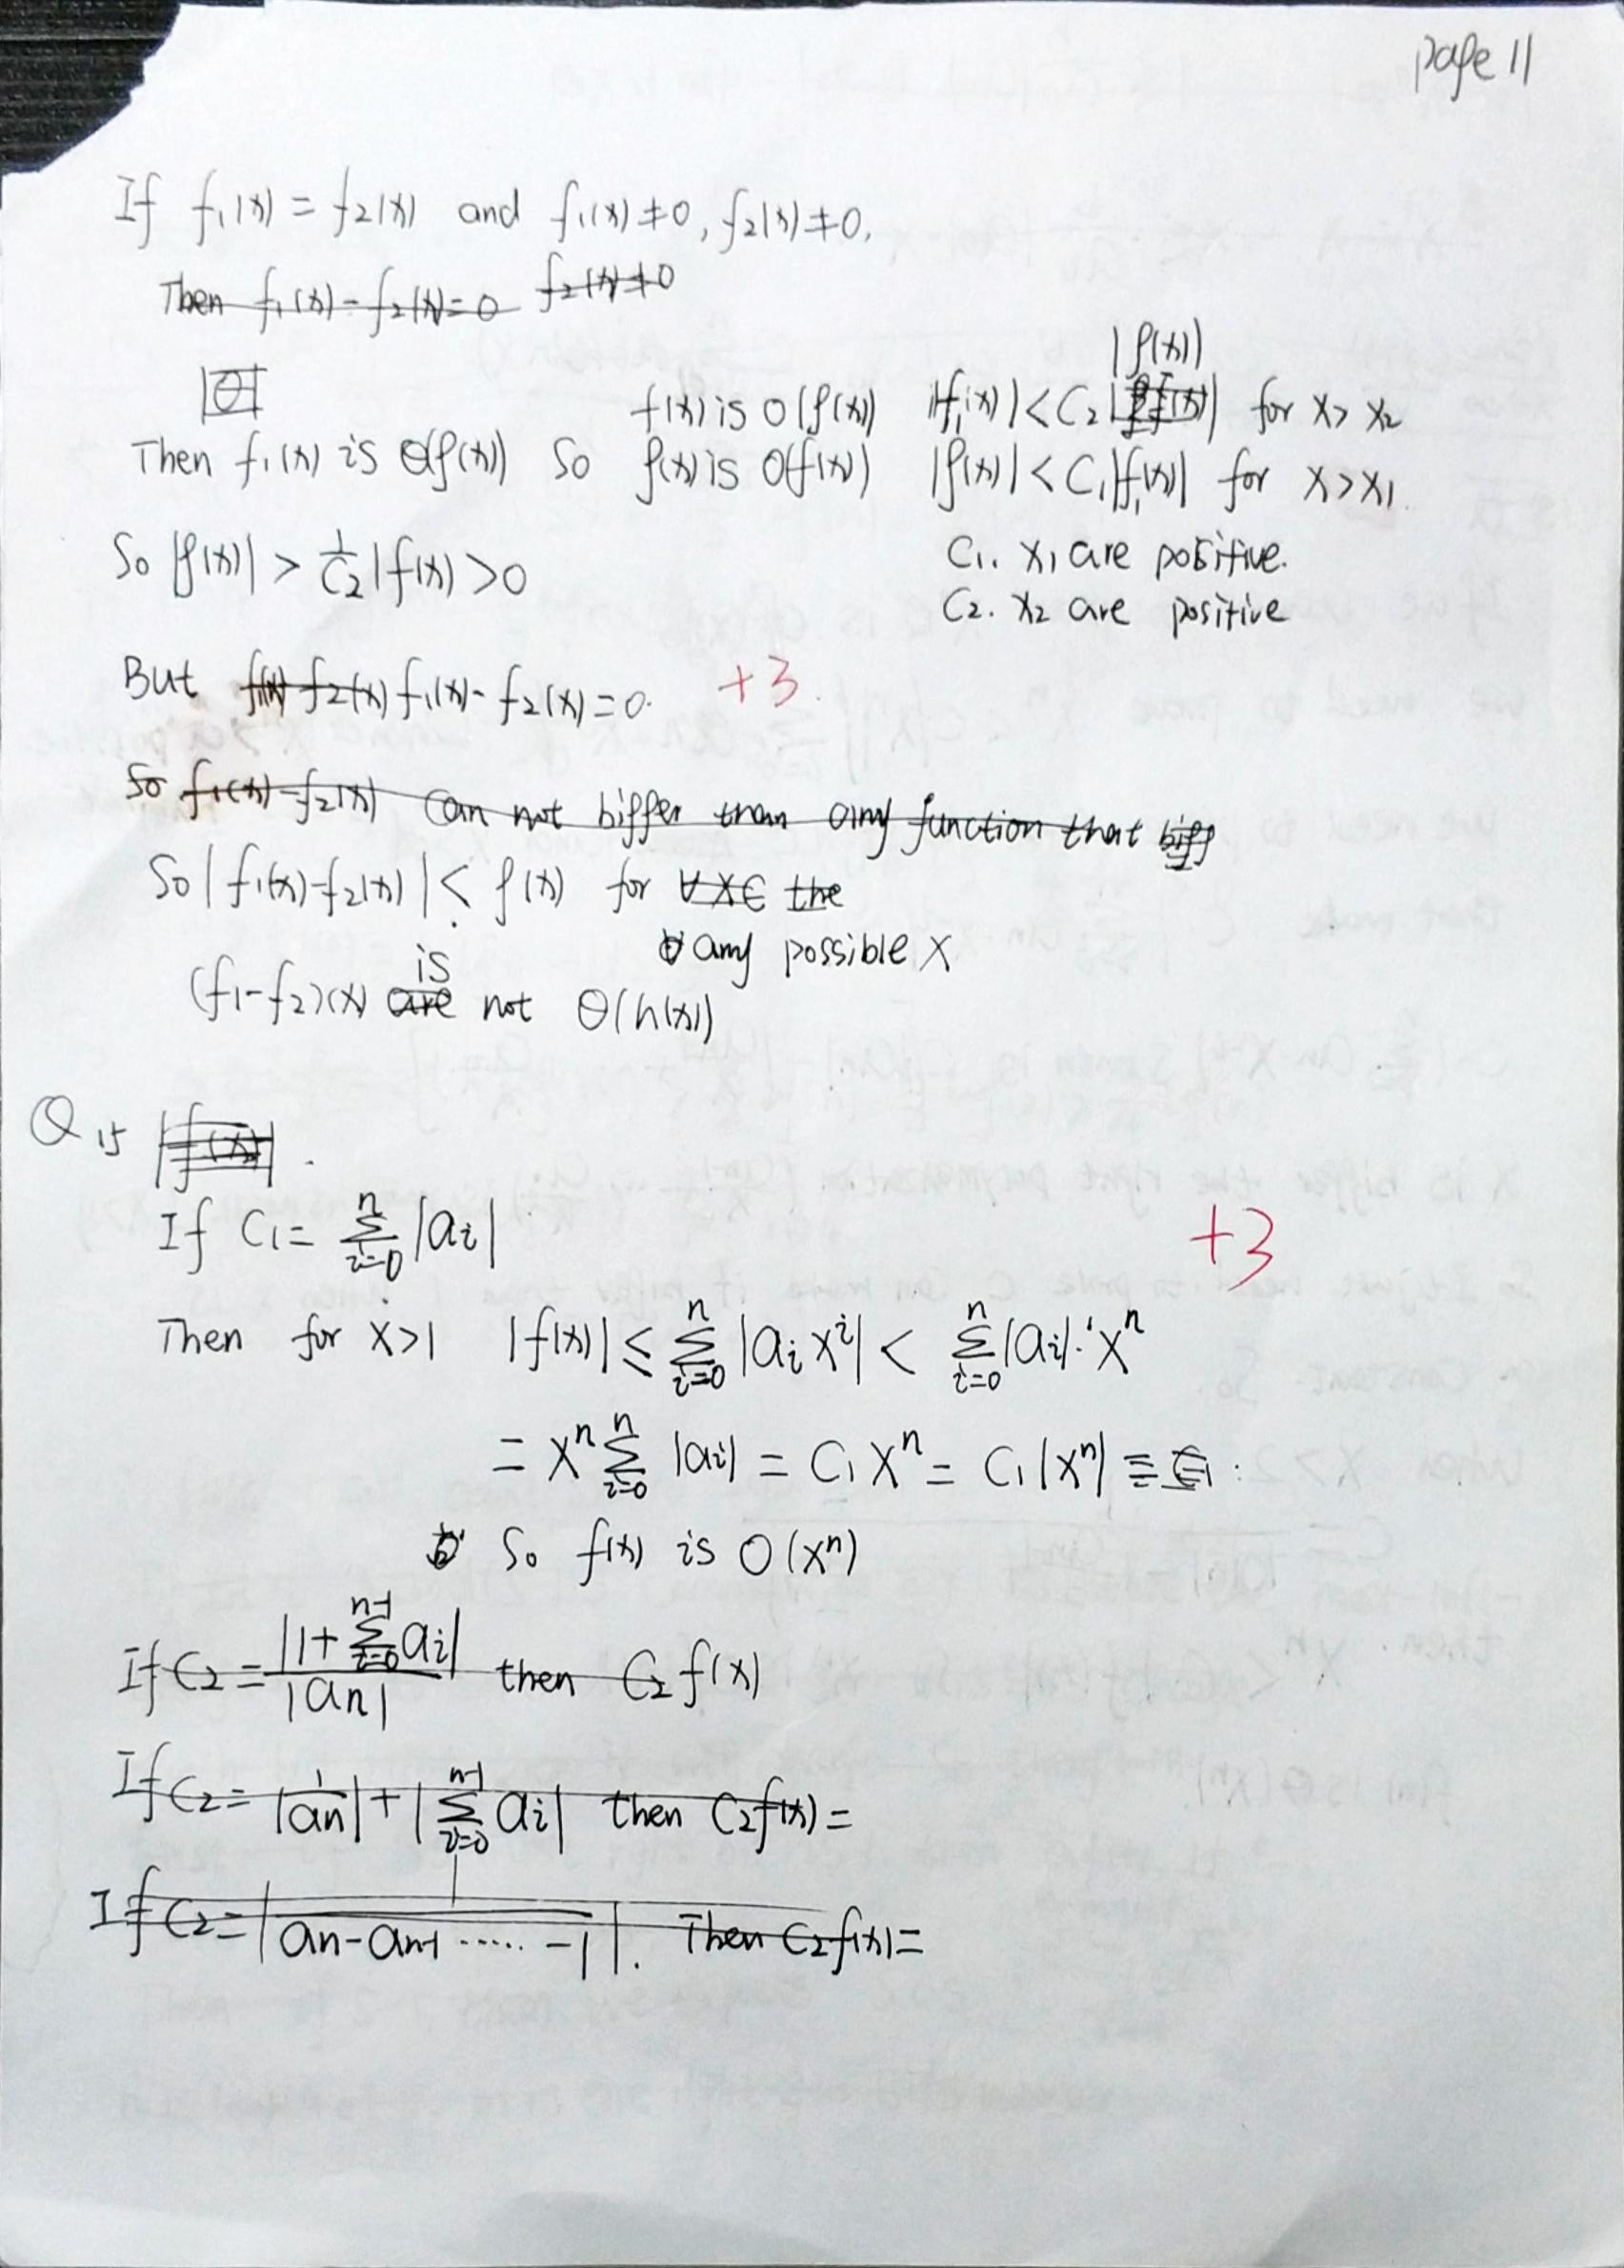 page 11
If f₁(x) = f₂(x) and f₁(x) ≠ 0, f₂(x) ≠ 0,
Then f₁(x) - f₂(x) = 0 f₂(x) ≠ 0
|g(x)|
f(x) is O(g(x)) |f₁(x)| < C₂ for x > x₂
Then f₁(x) is Θ(g(x)) So g(x) is O(f(x)) |g(x)| < C₁|f₁(x)| for x > x₁.
So |g(x)| > 1/C₂ |f(x) > 0
C₁. x₁ are positive.
C₂. x₂ are positive
But f₁(x) f₂(x) f₁(x) - f₂(x) = 0. +3.
So f₁(x) - f₂(x) can not bigger than any function that bigg
So | f₁(x) - f₂(x) | < g(x) for ∀x∈ the
any possible x
is
(f₁-f₂)(x) are not Θ(h(x))
Q15 |f(x)|.
If C₁ = Σ_{i=0}^{n} |aᵢ|
+3
Then for x>1 |f(x)| ≤ Σ_{i=0}^{n} |aᵢ xⁱ| < Σ_{i=0}^{n} |aᵢ|·xⁿ
= xⁿ Σ_{i=0}^{n} |aᵢ| = C₁ xⁿ = C₁ |xⁿ|
So f(x) is O(xⁿ)
If C₂ = |1 + Σ_{i=0}^{n-1} aᵢ| / |an| then C₂ f(x)
If C₂ = |1/an| + |Σ_{i=0}^{n-1} aᵢ| then C₂f(x) =
If C₂ = |1 / an - an-1 ..... -1|. Then C₂f(x) =